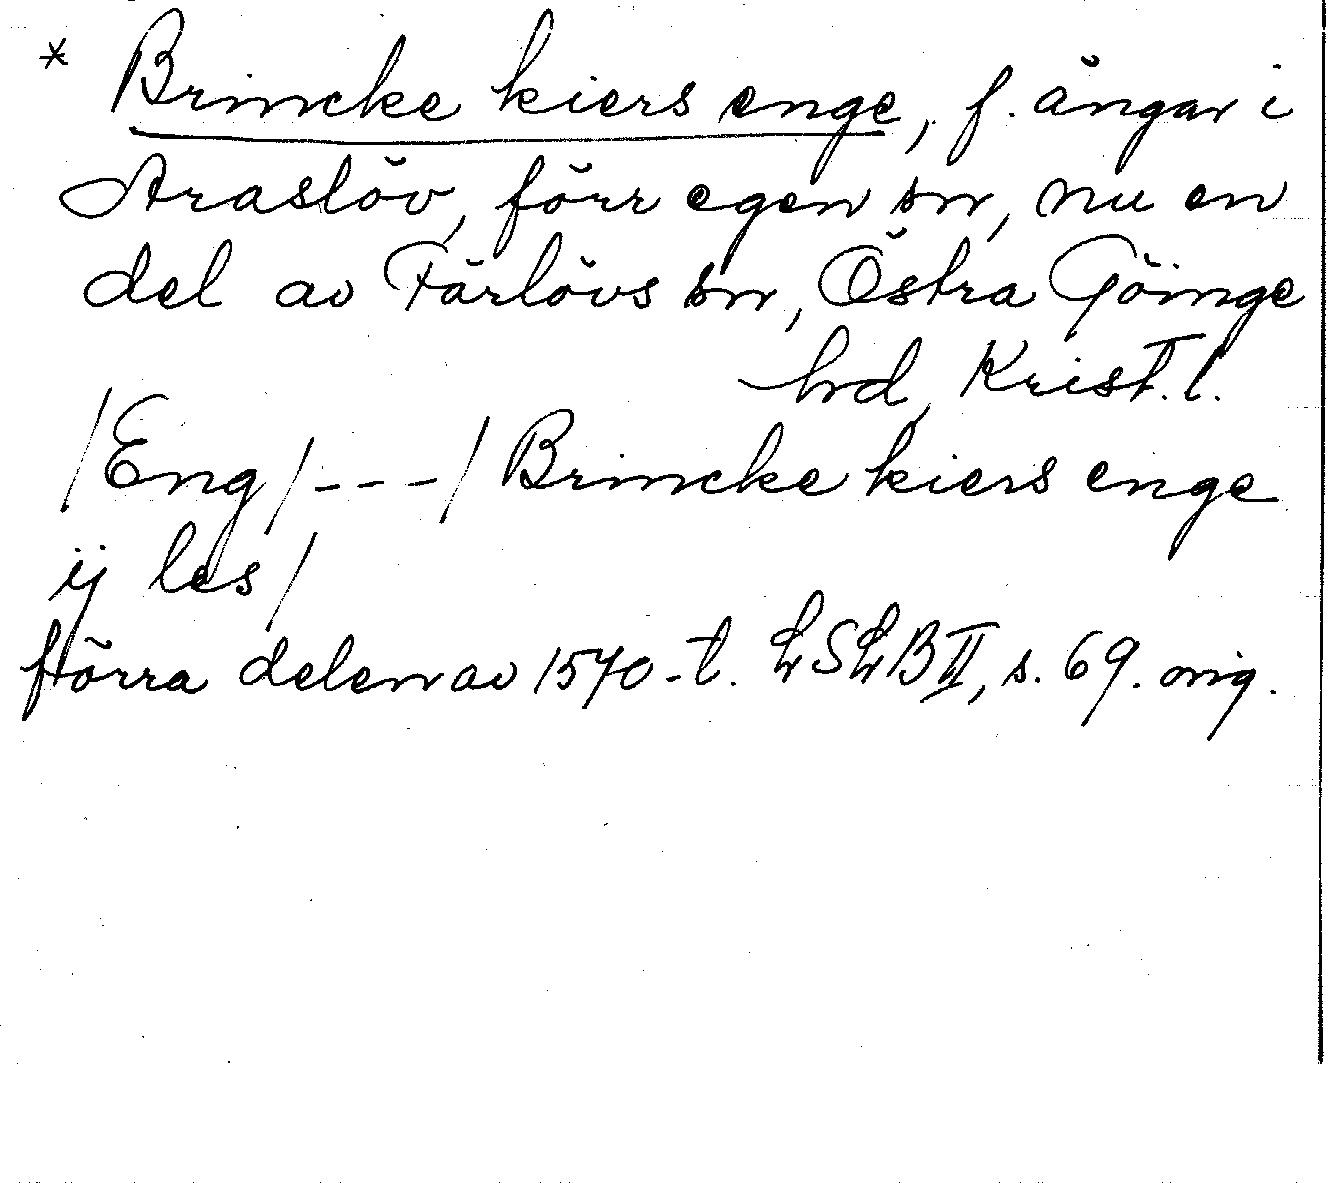 * Brincke kiers enge, f. ängar i
Araslöv, förr egen sn, nu en
del av Färlövs sn, Östra Göinge
hd, Krist. l.
/Eng/---/Brincke kiers enge
ij les/
förra delen av 1570-t. LSLB II, s. 69. orig.